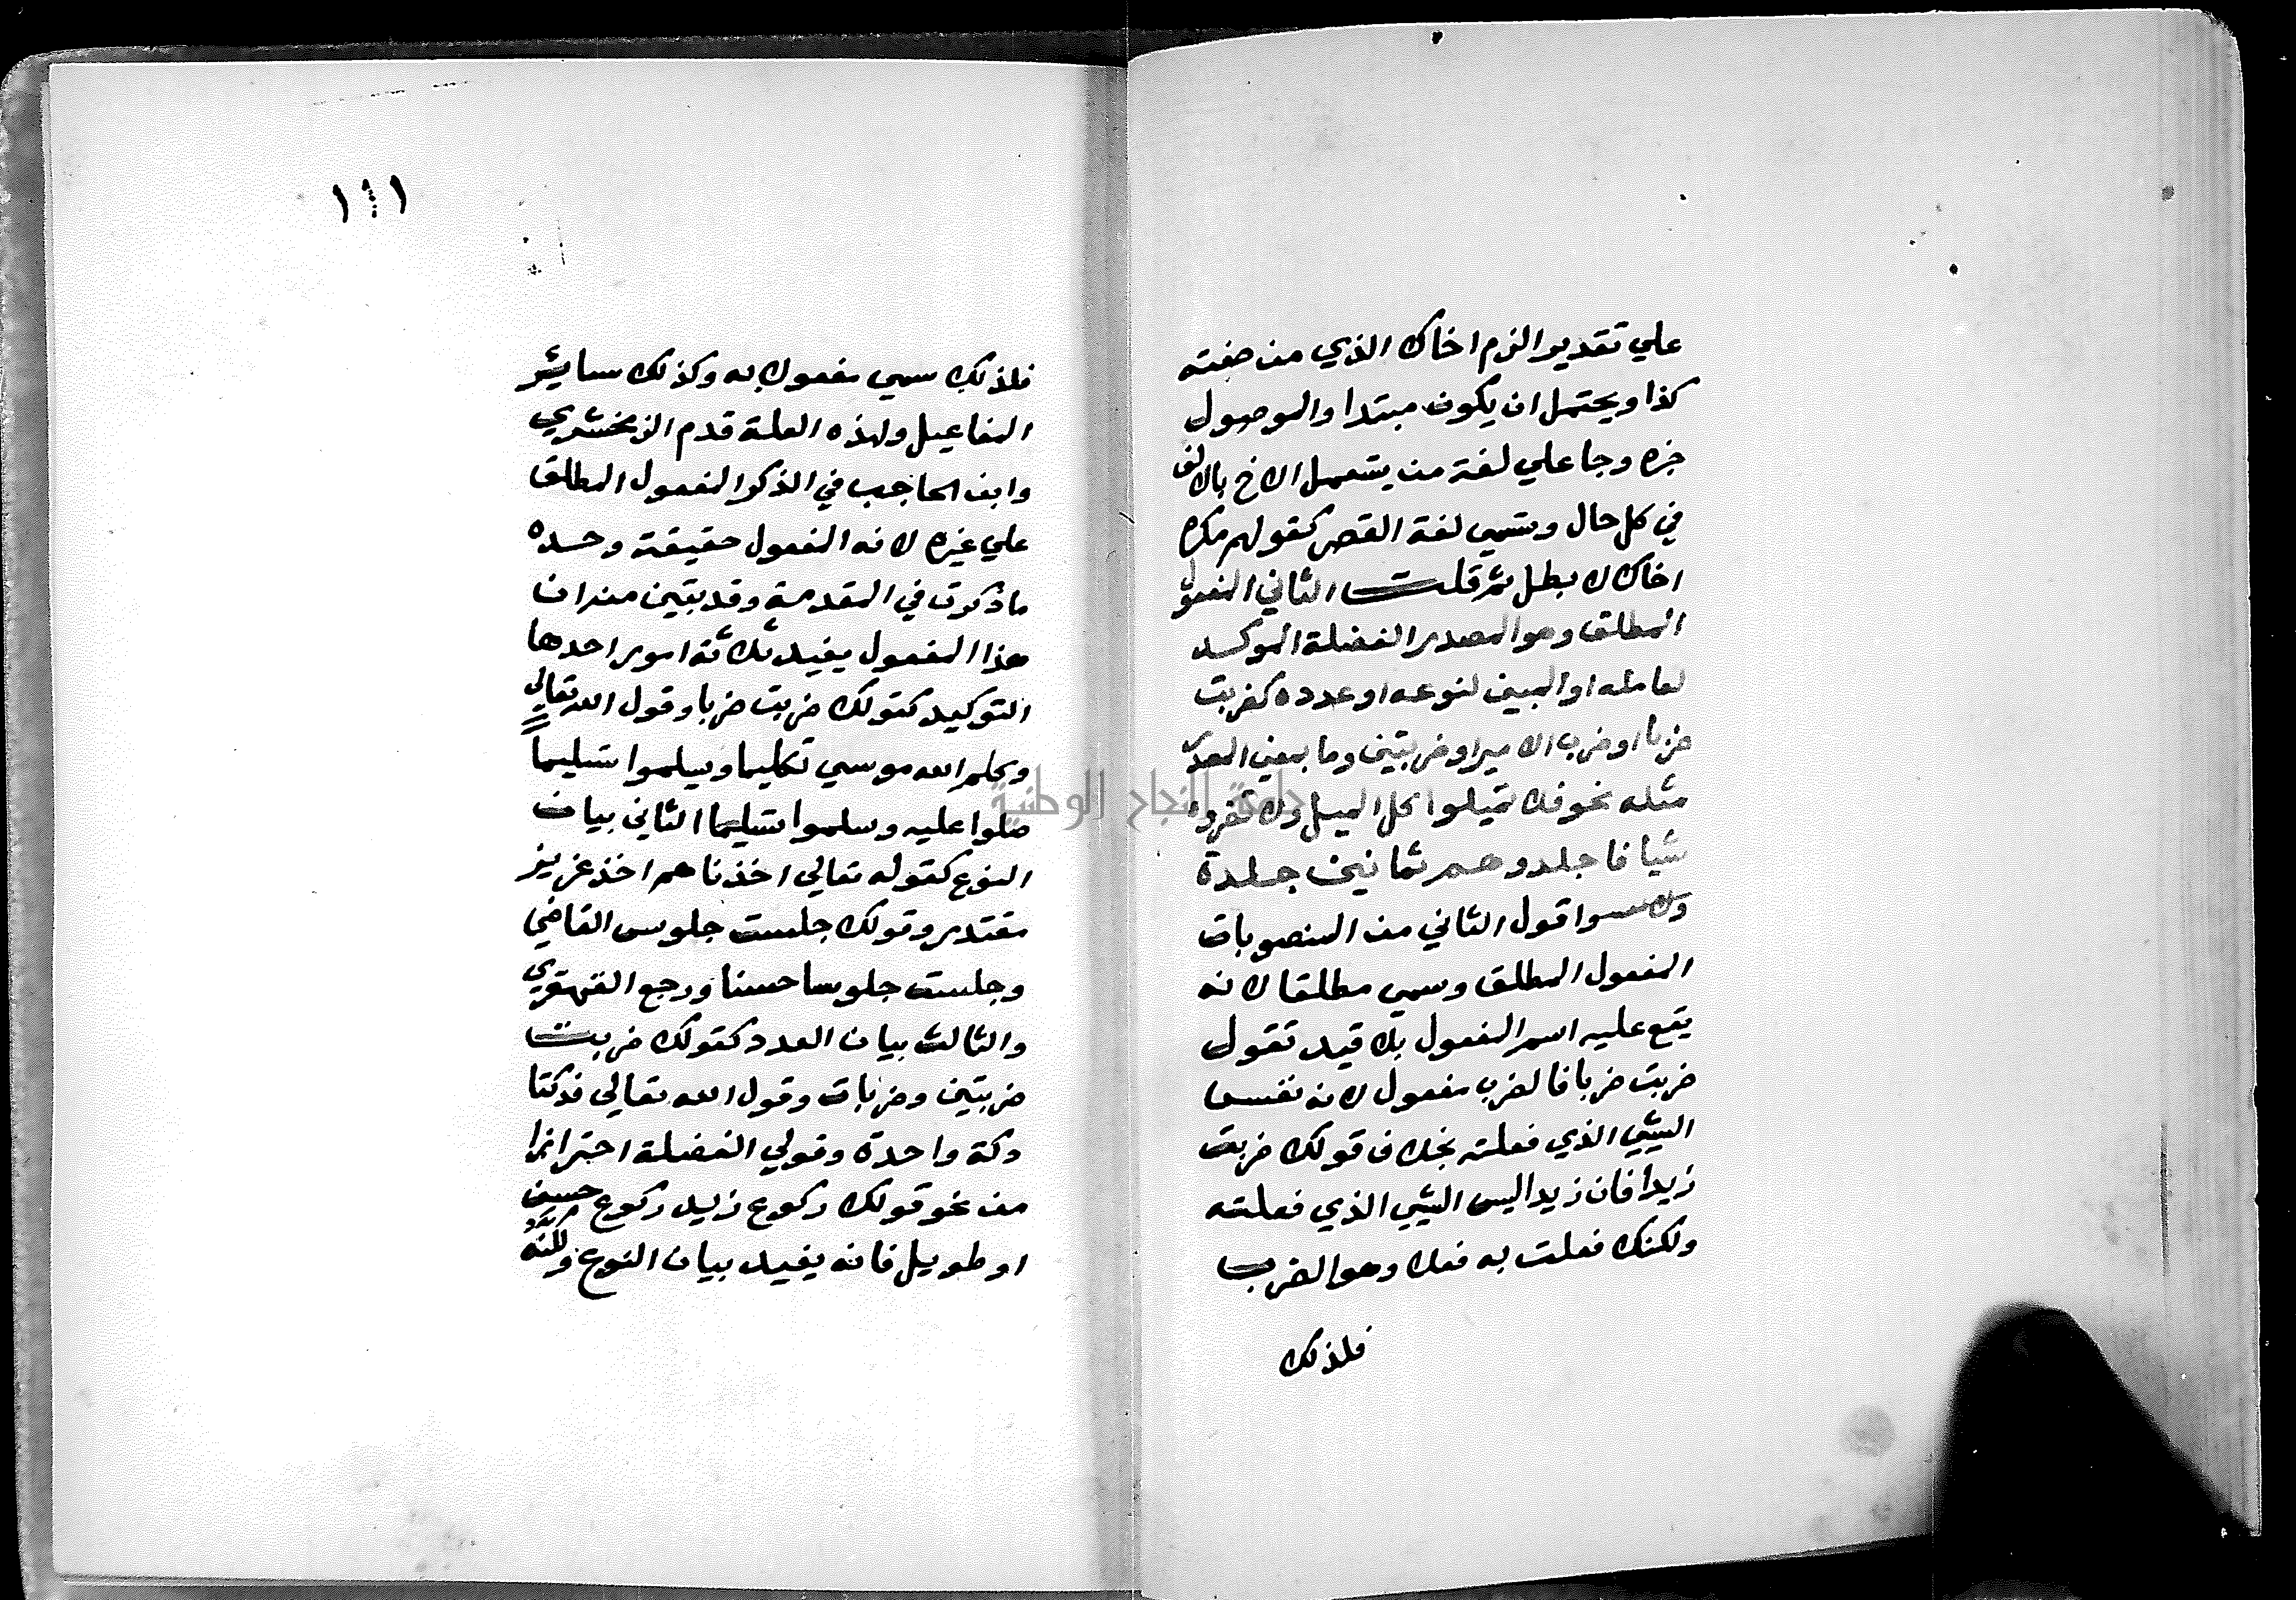 علي تقدير الزم اخاك الذي من صفته
كذا ويحتمل ان يكون مبتدا والموصول
خبره وجا علي لغة من يستعمل الاخ بالالف
في كل حال وتسمي لغة القصر كقولهم مكره
اخاك لا بطل ثم قلت الثاني المفعول
المطلق وهو المصدر الفضلة الموكد
لعامله او المبين لنوعه او عدده كضربت
ضربا او ضرب الامير او ضربتين وما بمعني المصدر
مثله نحو فلا تميلوا كل الميل ولا تضروه
شيا فاجلدوهم ثمانين جلدة
واقول الثاني من المنصوبات
المفعول المطلق وسمي مطلقا لانه
يقع عليه اسم المفعول بلا قيد تقول
ضربت ضربا فالضرب مفعول لانه نفس
الشي الذي فعلته بخلاف قولك ضربت
زيدا فان زيدا ليس الشي الذي فعلته
ولكنك فعلت به فعلا وهو الضرب
فلذلك
١٦١
فلذلك سمي مفعولا به وكذلك ساير
المفاعيل ولهذه العلة قدم الزمخشري
وابن الحاجب في الذكر المفعول المطلق
علي غيره لانه المفعول حقيقة وحده
ما ذكرت في المقدمة وقد تبين منه ان
هذا المفعول يفيد ثلاثة امور احدها
التوكيد كقولك ضربت ضربا وقول الله تعالي
وكلم الله موسي تكليما ويسلموا تسليما
صلوا عليه وسلموا تسليما الثاني بيان
النوع كقوله تعالي اخذناهم اخذ عزيز
مقتدر وقولك جلست جلوس القاضي
وجلست جلوسا حسنا ورجع القهقري
والثالث بيان العدد كقولك ضربت
ضربتين وضربات وقول الله تعالي فدكتا
دكة واحدة وقولي الفضلة احترازا
من نحو قولك ركوع زيد ركوع حسن
او طويل فانه يفيد بيان النوع ولكنه
جامعة النجاح الوطنية